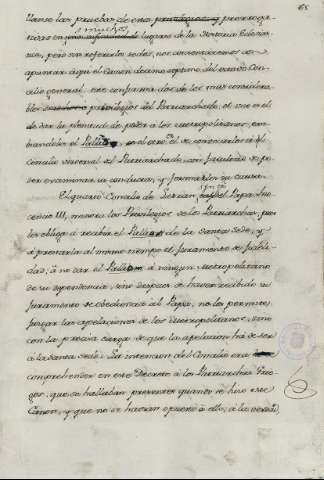 168
llarse las pruebas de esta prerroga
muchos
tiva en lugares de la Historia Eclesiás
tica, pero sin referirlos todos, nos contentaremos con
apuntar aqui el Canon decimo septimo del octavo Con
cilio general, que confirma dos de los mas considera
bles privilegios del Patriarchado, el uno es el
de dar la plenitud de poder á los metropolitanos, em
biandoles el Pallio, y el otro el de convocarlos á el
Concilio universal del Patriarchado con facultad de po
der examinar su conducta, y formarles su causa.
El quarto Concilio de Letran, el Papa Ino
cencio III, minora los Privilegios de los Patriarchas, pues
los obligó á recibir el Pallio de la Santa Sede, y
á prestarla al mismo tiempo el juramento de fideli
dad, á no dar el Pallio á ningun metropolitano
de su dependencia, sino despues de haver recibido su
juramento de obediencia al Papa, no les permite
juzgar las apelaciones de los metropolitanos, sino
con la precisa carga de que la apelacion há de ser
á la Santa Sede. La intencion del Concilio era
comprehender en este Decreto á los Patriarchas Grie
gos, que se hallaban presentes quando se hizo ese
Canon, y que no se havian opuesto á ello, á la verdad